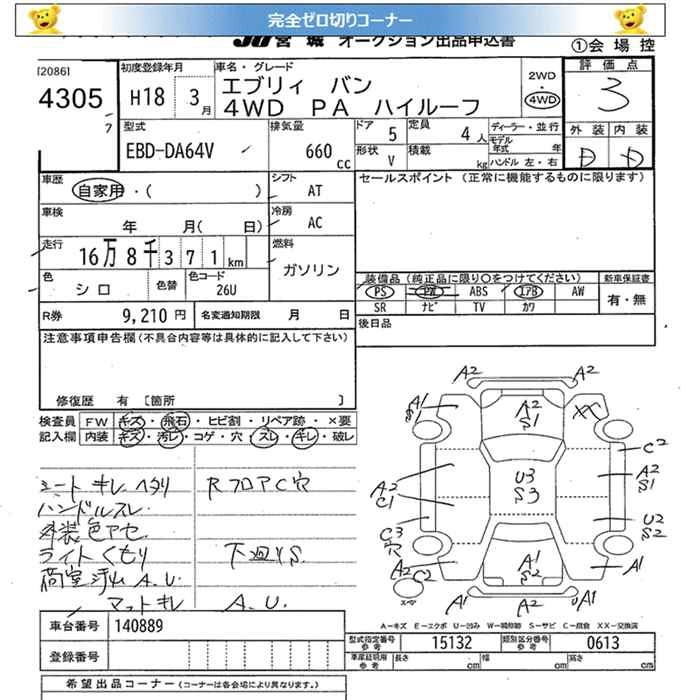 完全ゼロ切りコーナー
JU宮城 オークション出品申込書
①会場控
[2086]
4305
7
初度登録年月
H18 3月
車名・グレード
エブリィ バン
4WD PA ハイルーフ
2WD
・4WD
評価点
3
外装 内装
D D
型式
EBD-DA64V
排気量
660 cc
ドア 5
定員 4人
ディーラー・並行
モデル年式 年
形状 V
積載 kg
ハンドル 左・右
車歴
自家用・( )
シフト
AT
セールスポイント (正常に機能するものに限ります)
車検
年 月( 日)
冷房
AC
走行
16万8千371km
燃料
ガソリン
色
シロ
色替
色コード
26U
装備品(純正品に限り○をつけてください)
新車保証書
PS PW ABS エアB AW
有・無
SR ナビ TV カワ
R券 9,210円
名変通知期限 月 日
後日品
注意事項申告欄(不具合内容等は具体的に記入して下さい)
修復歴 有 〔箇所 〕
検査員記入欄
FW キズ・飛石・ヒビ割・リペア跡・×要
内装 キズ・汚レ・コゲ・穴・スレ・キレ・破レ
シート キレ ヘタリ
RフロアC穴
ハンドルスレ
外装色アセ
ライトくもり
下廻りS
荷室浮山 A.U.
マットキレ A.U.
A2 A2
A1
S1
A2
S1
XX
C2
A2
S1
A2
C1
U3
S3
C3
穴
U2
S2
A2 C2
A1
S2
A1
スペア
A1 A2 A1
A-キズ E-エクボ U-凹み W-補修跡 S-サビ C-腐食 XX-交換済
車台番号 140889
登録番号
型式指定番号 参考 15132
類別区分番号 参考 0613
車庫証明用 参考 長さ cm 幅 cm 高さ cm
希望出品コーナー(コーナーは各会場により異なります。)